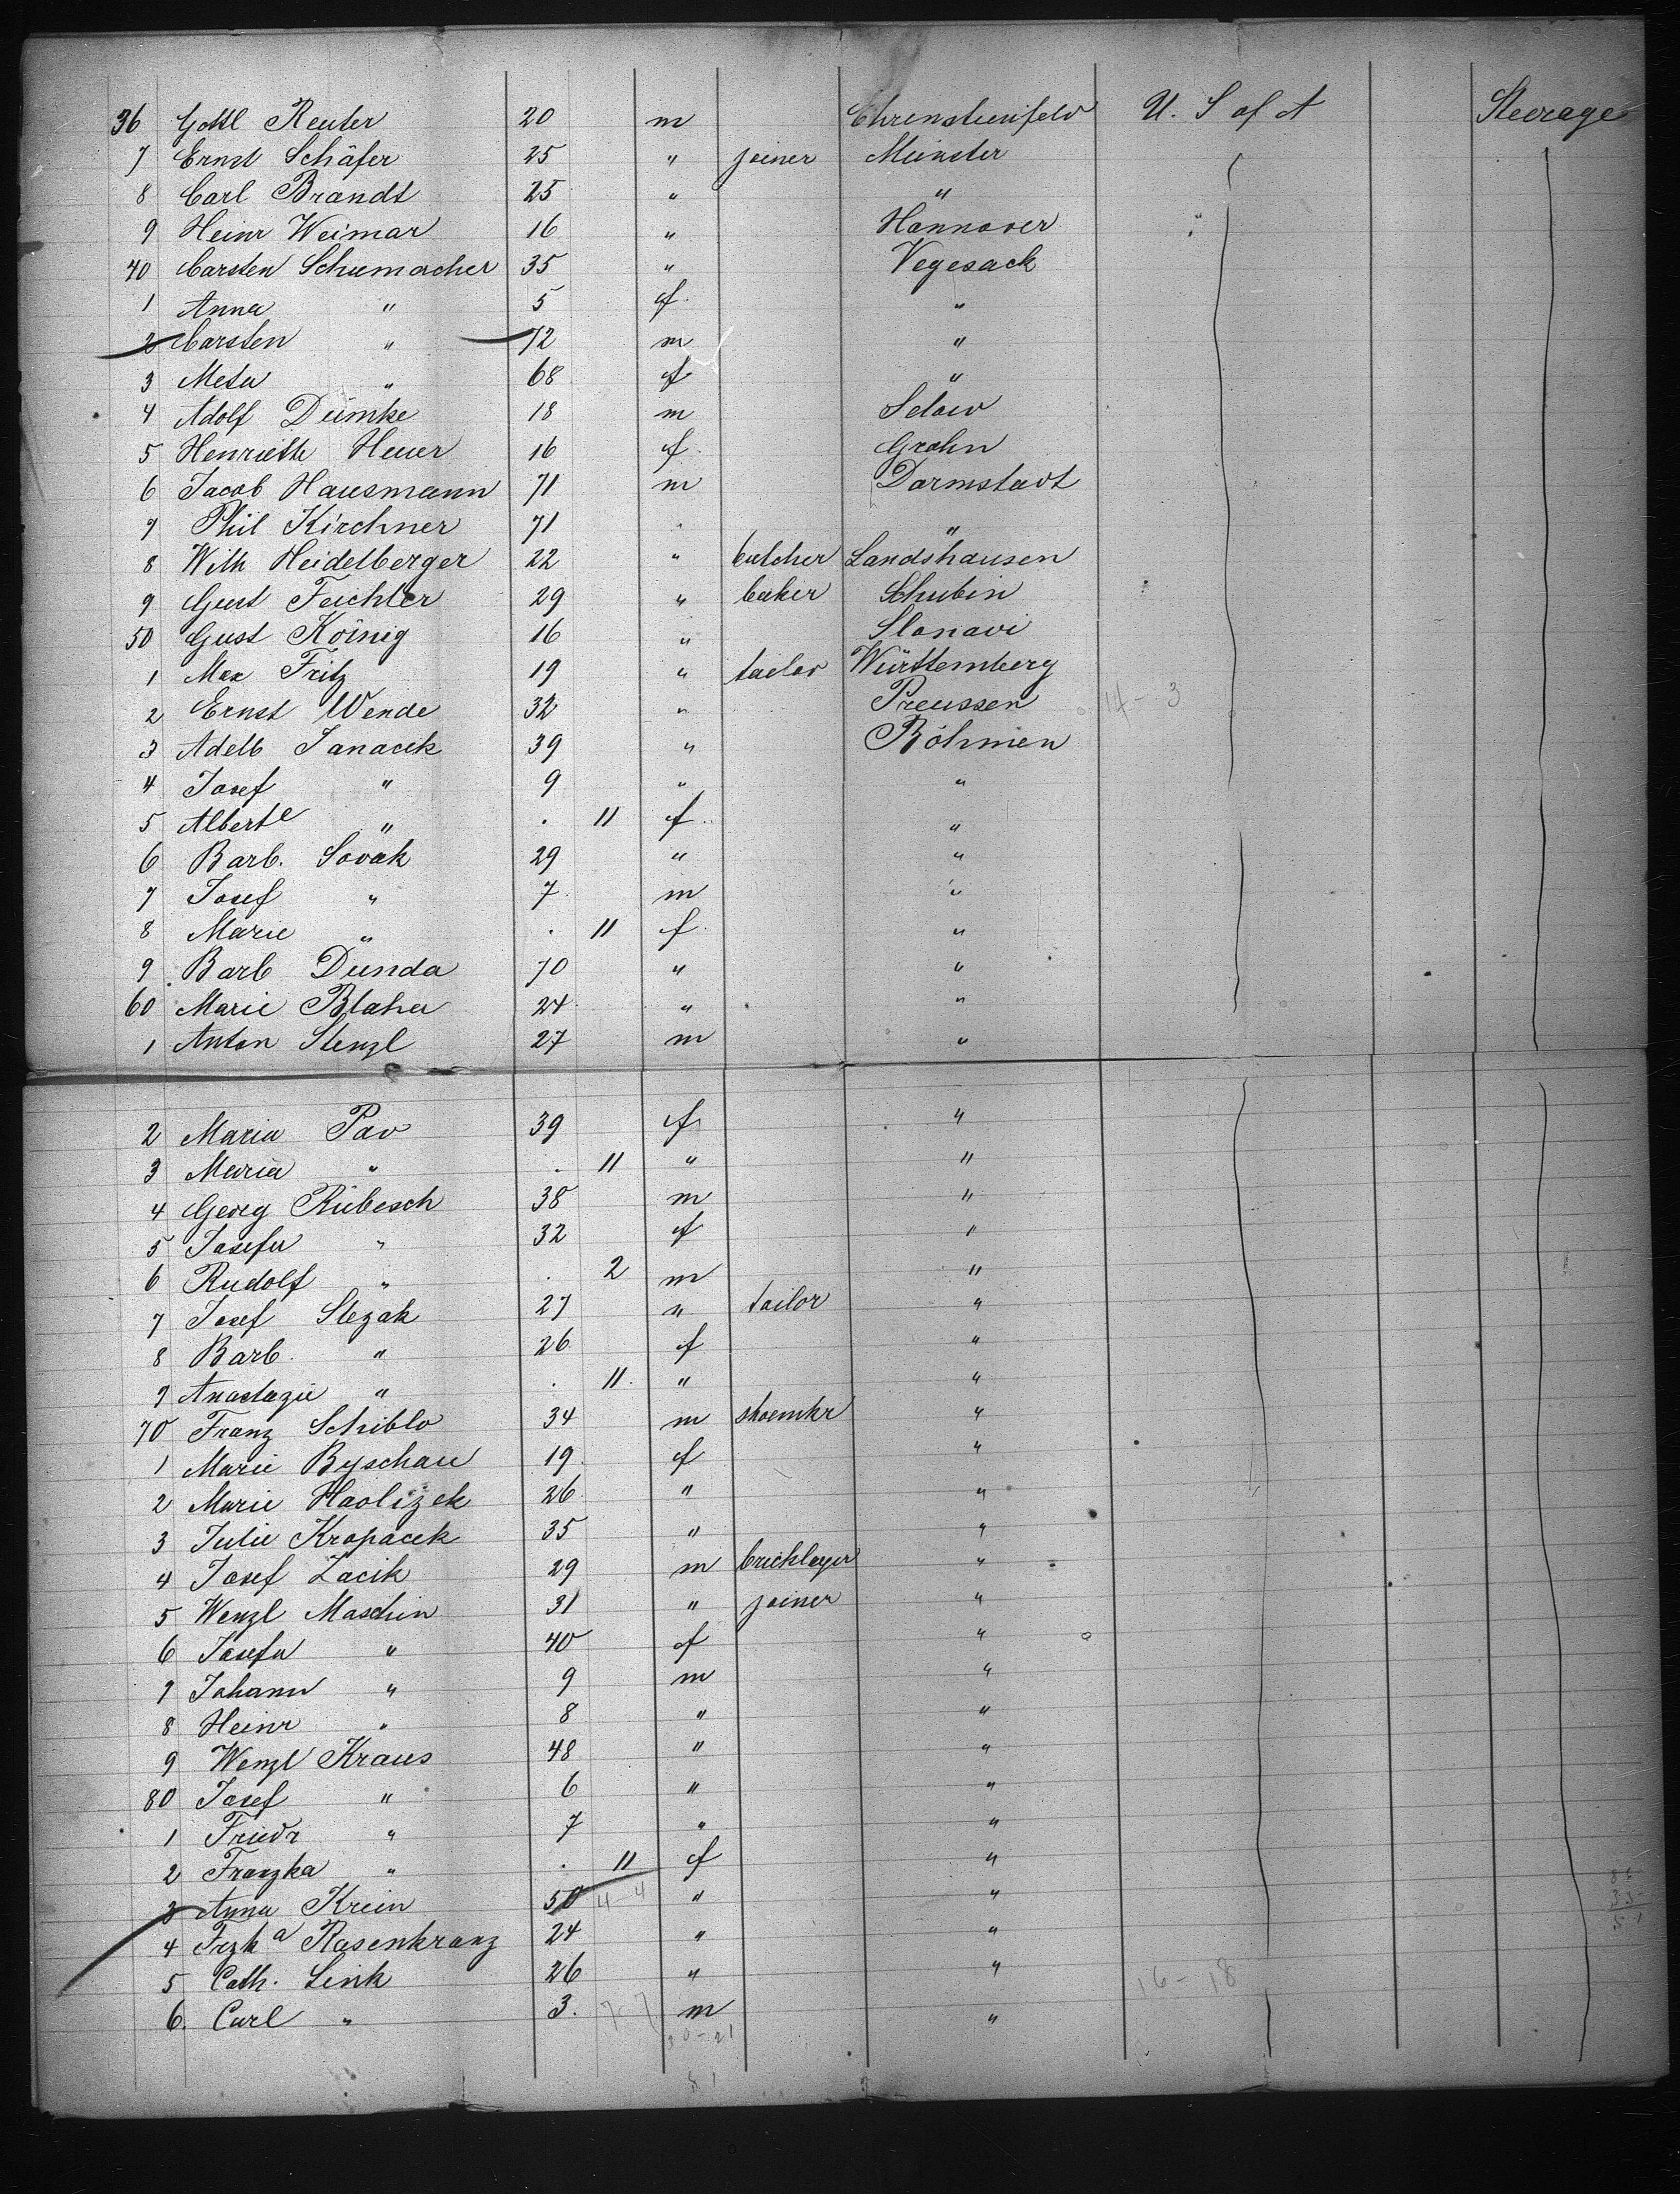 36 Gottl Reuter 20 m U. S of A Steerage
7 Ernst Schäfer 25 " joiner Münster
8 Carl Brandt 25 " "
9 Heinr Weimar 16 " Hannover
40 Carsten Schumacher 35 " Vegesack
1 Anna " 5 f. "
2 Carsten " 72 m "
3 Meta " 68 f "
4 Adolf Dümke 18 m Selow
5 Henrieth Heuer 16 f. Grohn
6 Jacob Hausmann 71 m Darmstadt
7 Phil Kirchner 71 " "
8 Wilh Heidelberger 22 " butcher Landshausen
9 Gust Feichler 29 " baker Schubin
50 Gust König 16 " Slonavi
1 Max Fritz 19 " tailor Württemberg
2 Ernst Wende 32 " Preussen 14-3
3 Adelb Janacek 39 " Böhmen
4 Josef " 9 " "
5 Alberte " . 11 f. "
6 Barb. Sovak 29 " "
7 Josef " 7 m "
8 Marie " . 11 f. "
9 Barb Dunda 70 " "
60 Marie Blaha 24 " "
1 Anton Stenzl 27 m "
2 Maria Pav 39 f "
3 Maria " . 11 " "
4 Georg Rübesch 38 m "
5 Josefa " 32 f "
6 Rudolf " . 2 m "
7 Josef Slezak 27 " tailor "
8 Barb. " 26 f "
9 Anastazie " . 11. " "
70 Franz Schiblo 34 m shoemkr "
1 Marie Byschau 19 f "
2 Marie Haolizek 26 " "
3 Julie Kropacek 35 " "
4 Josef Zacik 29 m bricklayer "
5 Wenzl Maschin 31 " joiner "
6 Josefa " 40 f "
7 Johann " 9 m "
8 Heinr " 8 " "
9 Wenzl Kraus 48 " "
80 Josef " 6 " "
1 Friedr " 7 " "
2 Franzka " . 11 f "
3 Anna Krein 50 4-4 " "
4 Frzka Rosenkranz 24 " "
5 Cath. Link 26 " " 16-18
6. Carl " 3. 7 7 m "